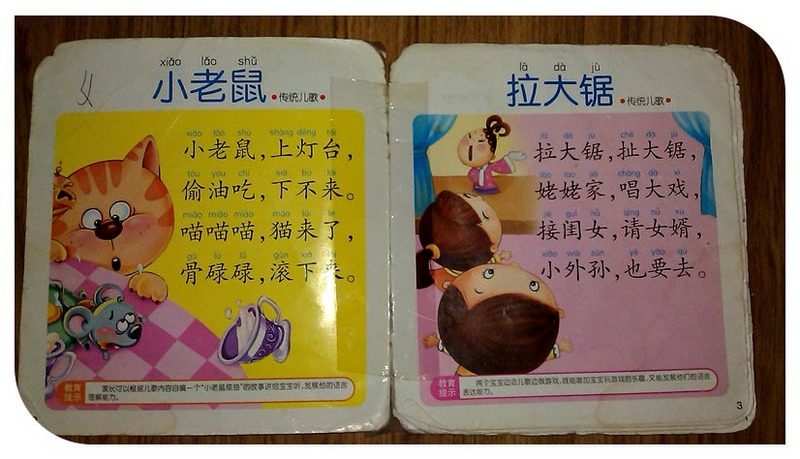 xiǎo lǎo shǔ
小老鼠
•传统儿歌•
xiǎo lǎo shǔ shàng dēng tái
小老鼠,上灯台,
tōu yóu chī xià bù lái
偷油吃,下不来。
miāo miāo miāo māo lái le
喵喵喵,猫来了,
gū lù lù gǔn xià lái
骨碌碌,滚下来。
教育
提示
家长可以根据儿歌内容自编一个“小老鼠偷油”的故事讲给宝宝听,发展他的语言
理解能力。
lā dà jù
拉大锯
•传统儿歌•
lā dà jù chě dà jù
拉大锯,扯大锯,
lǎo lao jiā chàng dà xì
姥姥家,唱大戏,
jiē guī nǚ qǐng nǚ xù
接闺女,请女婿,
xiǎo wài sūn yě yào qù
小外孙,也要去。
教育
提示
两个宝宝边念儿歌边做游戏,既能增加宝宝玩游戏的乐趣,又能发展他们的语言
表达能力。
3